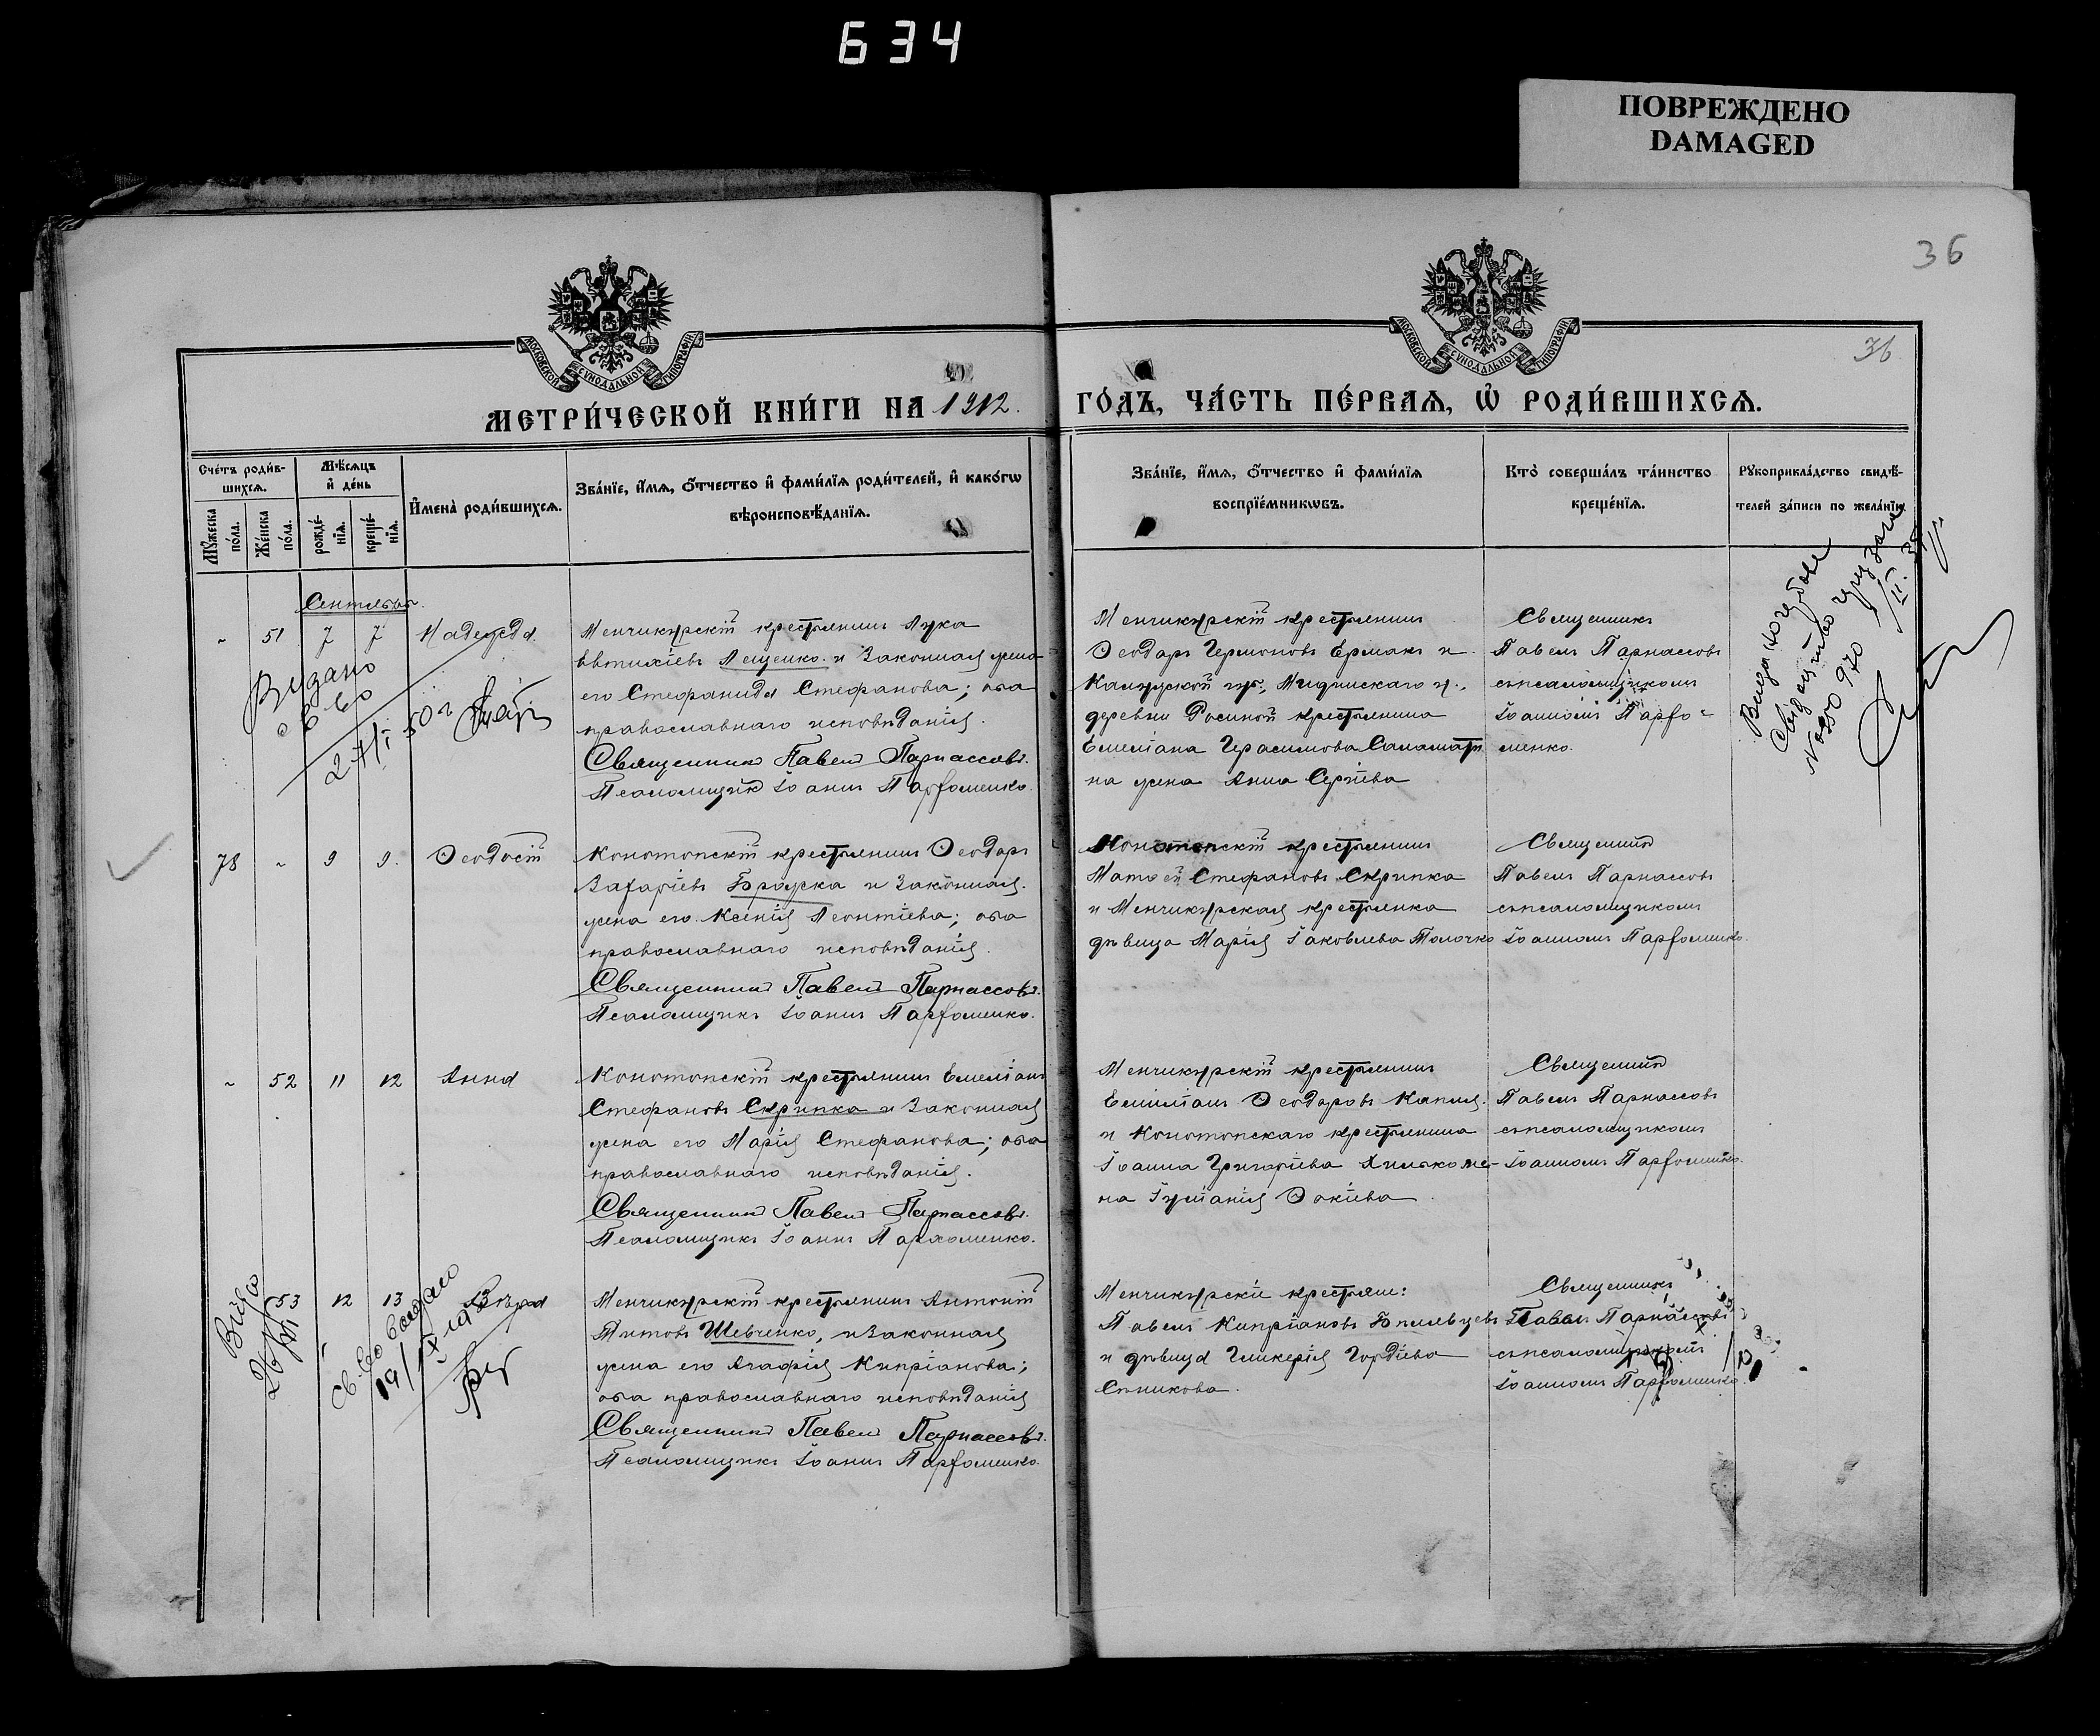 634
ПОВРЕЖДЕНО
DAMAGED
36
36
МОСКОВСКОЙ СУНОДАЛЬНОЙ ТИПОГРАФІИ
МОСКОВСКОЙ СУНОДАЛЬНОЙ ТИПОГРАФІИ
МЕТРИ́ЧЕСКОЙ КНИ́ГИ НА 1912.
ГО́ДЪ, ЧА́СТЬ ПЕ́РВАѦ, Ѡ҆ РОДИ́ВШИХСѦ.
Сче́тъ роди́в-
шихсѧ.
Мѣ́сѧцъ
и҆ де́нь
Мꙋ́жеска
по́ла.
Же́нска
по́ла.
рожде́-
нїѧ.
креще́-
нїѧ.
И҆мена̀ роди́вшихсѧ.
Зва́нїе, и҆́мѧ, ѻ҆́тчество и҆ фами́лїѧ роди́телей, и҆ како́гѡ
вѣроисповѣ́данїѧ.
Зва́нїе, и҆́мѧ, ѻ҆́тчество и҆ фами́лїѧ
воспрїе́мникѡвъ.
Кто̀ соверша́лъ та́инство
креще́нїѧ.
Рꙋкоприкла́дство свидѣ́-
телей за́писи по жела́нїю
Сентябрь.
~ 51 7 7 Надежда
Менчикурскій крестьянинъ Лука
Евтихіевъ Лещенко и законная жена
его Стефанида Стефанова; оба
православнаго исповѣданія.
Священникъ Павелъ Парнассовъ.
Псаломщикъ Іоаннъ Парфоменко.
Менчикурскій крестьянинъ
Ѳеодоръ Ермакъ и
Калужской губ.,
деревни крестьянина
Емеліана Герасимова
на жена Анна Сергіева
Священникъ
Павелъ Парнассовъ
съ псаломщикомъ
Іоанномъ Парфо-
менко.
Видано
с в во
27/I 50 г
No 350 970 /II. 35
78 ~ 9 9. Ѳеодосій
Конотопскій крестьянинъ Ѳеодоръ
Захаріевъ Бражка и законная
жена его Ксенія Леонтіева; оба
православнаго исповѣданія.
Священникъ Павелъ Парнассовъ.
Псаломщикъ Іоаннъ Парфоменко.
Конотопскій крестьянинъ
Матѳей Стефановъ Скрипка
и Менчикурская крестьянка
дѣвица Марія Іаковлева Толочко
Священникъ
Павелъ Парнассовъ
съ псаломщикомъ
Іоанномъ Парфоменко.
~ 52 11 12 Анна
Конотопскій крестьянинъ Емеліанъ
Стефановъ Скрипка и законная
жена его Марія Стефанова; оба
православнаго исповѣданія.
Священникъ Павелъ Парнассовъ.
Псаломщикъ Іоаннъ Пархоменко.
Менчикурскій крестьянинъ
Емиліанъ Ѳеодоровъ
и Конотопскаго крестьянина
Іоанна Григоріева Хилько же-
на Іуліанія
Священникъ
Павелъ Парнассовъ
съ псаломщикомъ
Іоанномъ Парфоменко.
53 12 13 Вѣра
Менчикурскій крестьянинъ Антоній
Титовъ Шевченко, и законная
жена его Агафія Кипріанова;
оба православнаго исповѣданія
Священникъ Павелъ Парнассовъ.
Псаломщикъ Іоаннъ Парфоменко.
Менчикурскіе крестьяне:
Павелъ Кипріановъ
и дѣвица Гликерія Гордіева
Сѣчикова.
Священникъ
Павелъ Парнассовъ
съ псаломщикомъ
Іоанномъ Парфоменко.